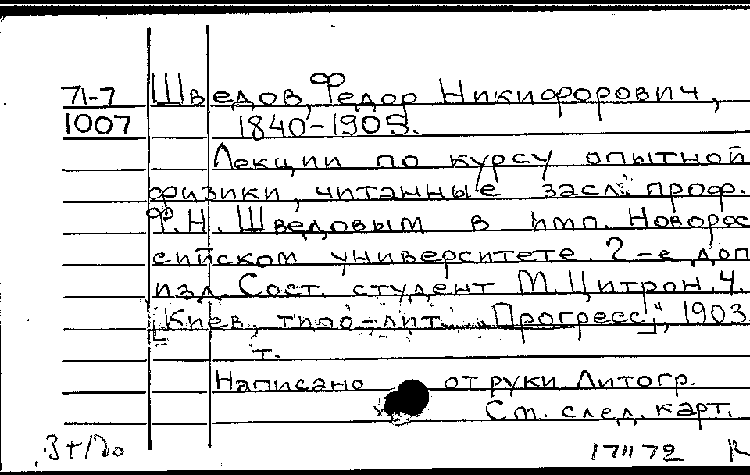 71-7 Шведов, Федор Никифорович,
1007 1840-1905.
Лекции по курсу опытной
физики, читанные засл. проф.
Ф.Н. Шведовым в имп. Новорос
сийском университете. 2-е доп
изд. Сост. студент М. Цитрон. Ч.
[Киев, типо-лит. "Прогресс"], 1903
т.
Написано от руки. Литогр.
См. след. карт.
171172